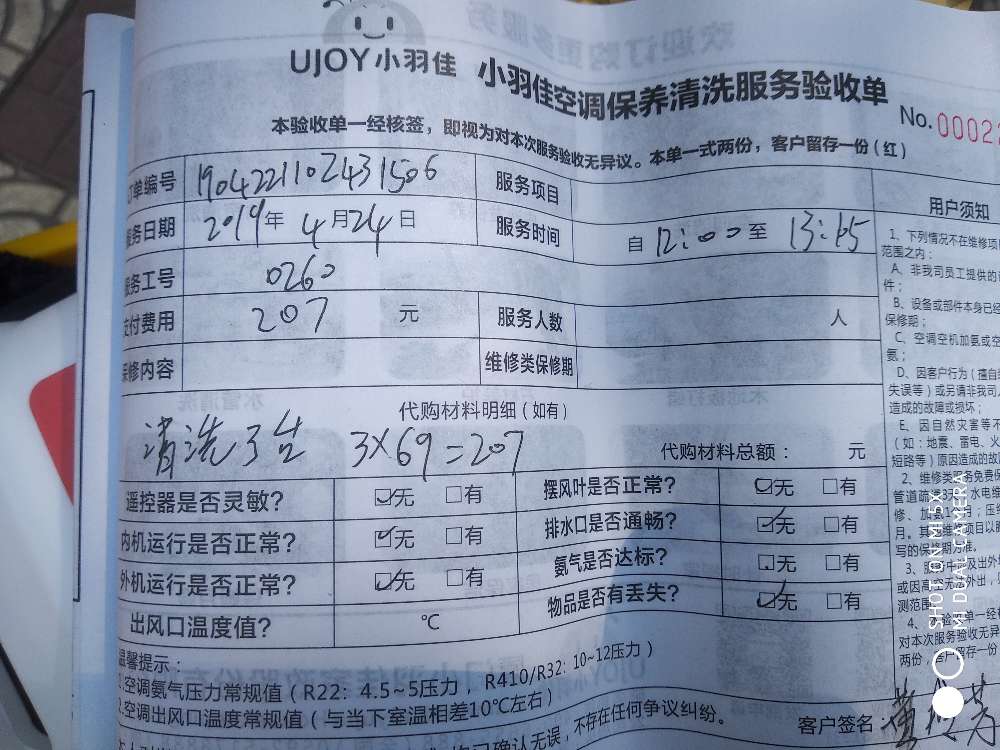 UJOY小羽佳 小羽佳空调保养清洗服务验收单
No.00022
本验收单一经核签，即视为对本次服务验收无异议。本单一式两份，客户留存一份(红)
订单编号 1904221102431506 服务项目
服务日期 2019年4月24日 服务时间 自12:00至13:05
服务工号 0260
支付费用 207 元 服务人数 人
保修内容 维修类保修期
代购材料明细(如有)
清洗3台 3×69=207 代购材料总额： 元
遥控器是否灵敏? ☑无 □有 摆风叶是否正常? ☑无 □有
内机运行是否正常? ☑无 □有 排水口是否通畅? ☑无 □有
外机运行是否正常? ☑无 □有 氨气是否达标? □无 □有
出风口温度值? ℃ 物品是否有丢失? ☑无 □有
温馨提示：
1.空调氨气压力常规值(R22：4.5~5压力，R410/R32：10~12压力)
2.空调出风口温度常规值(与当下室温相差10℃左右)
确认无误，不存在任何争议纠纷。
客户签名
用户须知
1、下列情况不在维修项
范围之内：
A、非我司员工提供的
件；
B、设备或部件本身已经
保修期；
C、空调空机加氨或空
氨；
D、因客户行为(擅自
失误等)或另请非我司
造成的故障或损坏；
E、因自然灾害等不
(如:地震、雷电、火
短路等)原因造成的故
2、维修类服务免费保
管道疏 水电维
修、加 月；压缩
月。其 维修项目以
写的保修期为准。
3、服 及出外
或因高空无 外出，
测范围
4、 验 单一经核
对本次服务验收无异
两份，客户留存一份
SHOT ON MI 5X
MI DUAL CAMERA